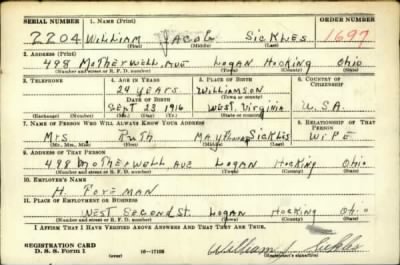 SERIAL NUMBER 1. NAME (Print) ORDER NUMBER
2204 WILLIAM JACOB SICKLES 1697
(First) (Middle) (Last)
2. ADDRESS (Print)
498 MOTHERWELL AVE LOGAN HOCKING OHIO
(Number and street or R. F. D. number) (Town) (County) (State)
3. TELEPHONE 4. AGE IN YEARS 5. PLACE OF BIRTH 6. COUNTRY OF CITIZENSHIP
24 YEARS WILLIAMSON
DATE OF BIRTH (Town or county)
SEPT 23 1916 WEST VIRGINIA U.S.A.
(Exchange) (Number) (Mo.) (Day) (Yr.) (State or country)
7. NAME OF PERSON WHO WILL ALWAYS KNOW YOUR ADDRESS 8. RELATIONSHIP OF THAT PERSON
MRS RUTH MAY SICKLES WIFE
(Mr., Mrs., Miss) (First) (Middle) (Last)
9. ADDRESS OF THAT PERSON
498 MOTHERWELL AVE LOGAN HOCKING OHIO
(Number and street or R. F. D. number) (Town) (County) (State)
10. EMPLOYER'S NAME
H. POREMAN
11. PLACE OF EMPLOYMENT OR BUSINESS
WEST SECOND ST. LOGAN HOCKING OHIO
(Number and street or R. F. D. number) (Town) (County) (State)
I AFFIRM THAT I HAVE VERIFIED ABOVE ANSWERS AND THAT THEY ARE TRUE.
REGISTRATION CARD
D. S. S. Form 1 16—17105 William J Sickles
(Registrant's signature)